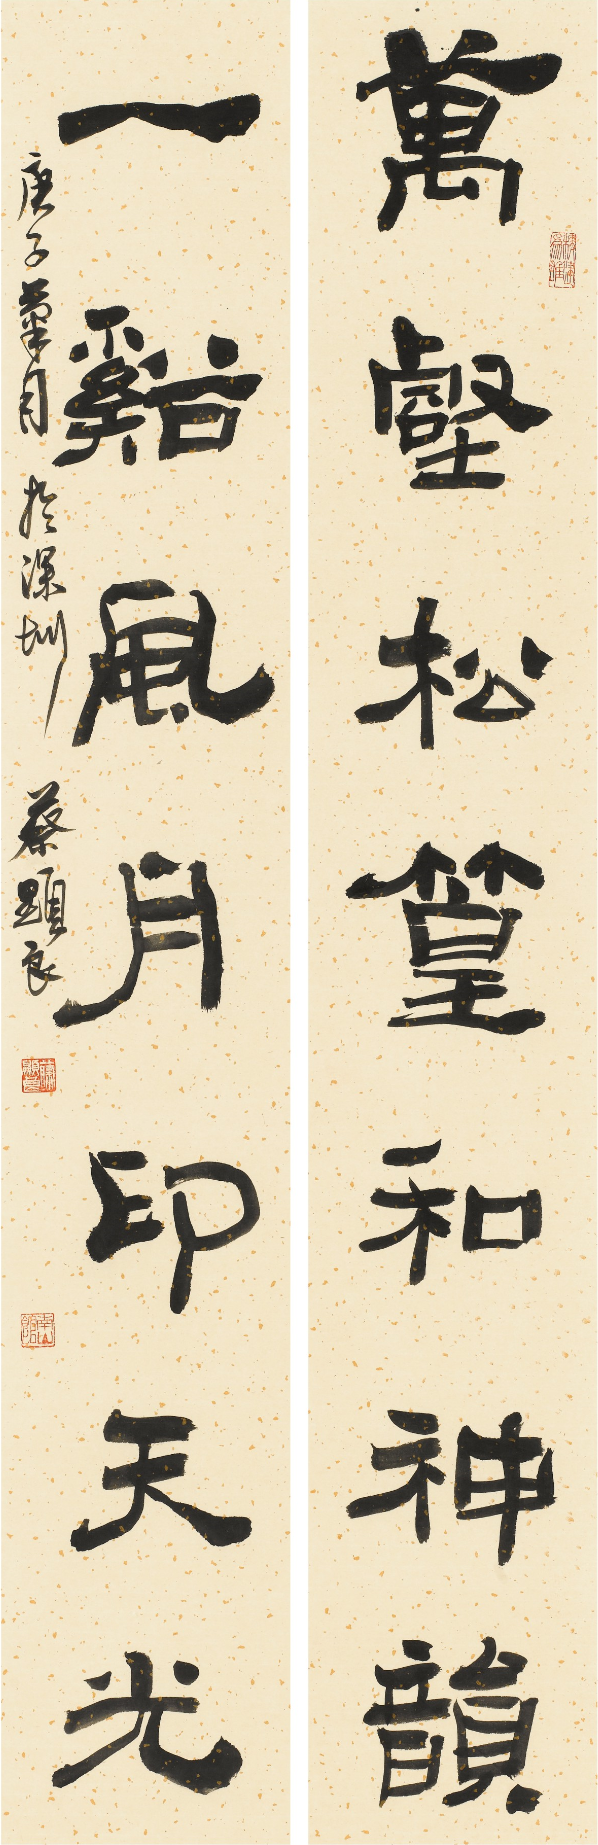 萬壑松篁和神韻
一谿風月印天光
庚子菊月於深圳蔡顯良